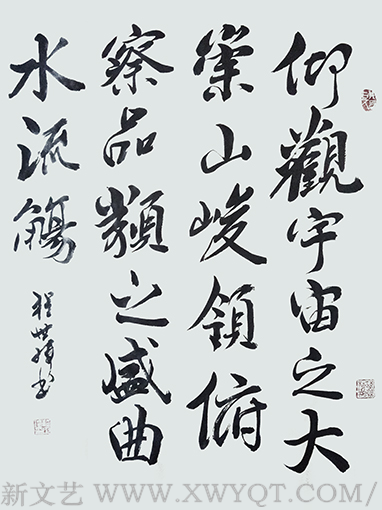 仰觀宇宙之大
崇山峻領俯
察品類之盛曲
水流觴
程世书
新文艺 WWW.XWYQT.COM/